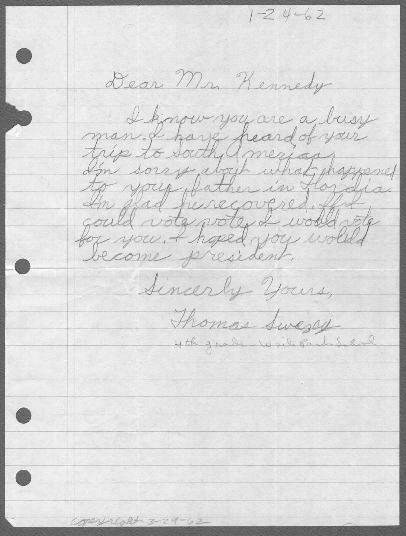 1-24-62
Dear Mr. Kennedy
I know you are a busy
man. I have heard of your
trip to South Ameriaa.
I'm sorry about what happened
to your father in Flordia.
I'm glad he recovered. If I
could vote vote, I would vote
for you. I hoped you would
become president.
Sincerly Yours,
Thomas Swezey
4th grade - Park School
3-29-62